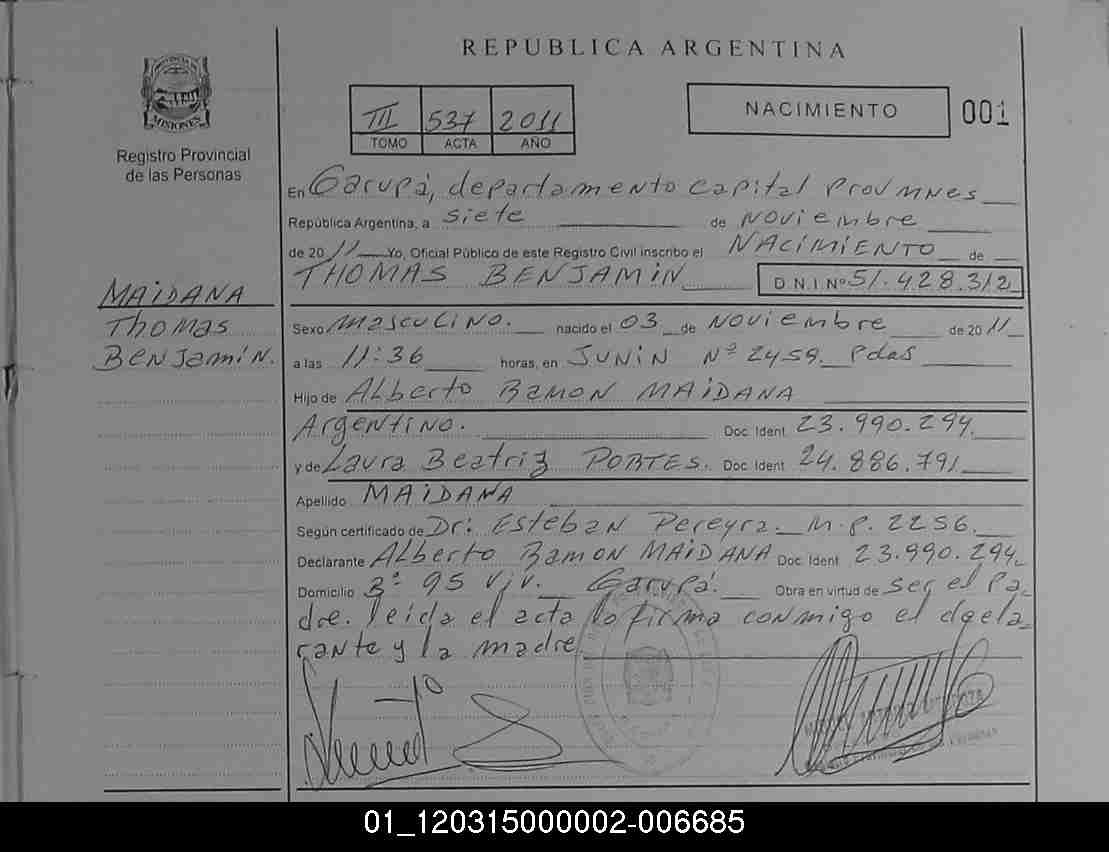 REPUBLICA ARGENTINA
PROVINCIA DE
MISIONES
Registro Provincial
de las Personas
III 537 2011
TOMO ACTA AÑO
NACIMIENTO 001
En Garupá, departamento capital Prov Mnes
República Argentina, a siete de Noviembre
de 2011 Yo, Oficial Público de este Registro Civil inscribo el NACIMIENTO de
THOMAS BENJAMIN D N.I Nº 51.428.312
MAIDANA
Thomas
BENJAMIN.
Sexo masculino. nacido el 03 de Noviembre de 2011
a las 11:36 horas, en JUNIN Nº 2459. Pdas
Hijo de Alberto Ramon MAIDANA
Argentino. Doc. Ident 23.990.294.
y de Laura Beatriz PORTES. Doc. Ident 24.886.791
Apellido MAIDANA
Según certificado de Dr: Esteban Pereyra. M.P. 2256.
Declarante Alberto Ramon MAIDANA Doc. Ident 23.990.294.
Domicilio Bº 95 Viv. Garupá. Obra en virtud de ser el Pa-
dre. leida el acta la firma conmigo el decla-
rante y la madre
01_120315000002-006685